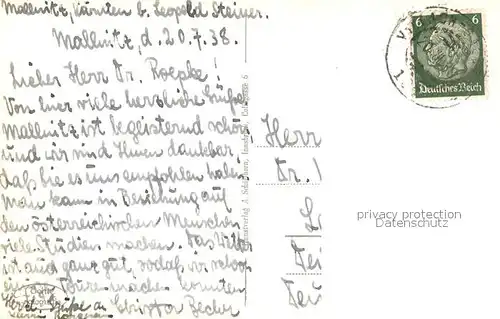 Mallnitz, Kärnten b. Leopold Steiner.
Mallnitz, d. 20.7.38.
Lieber Herr Dr. Roepke!
Von hier viele herzliche Grüße.
Mallnitz ist begeisternd schön
und wir sind Ihnen dankbar,
daß Sie es uns empfohlen haben.
Man kann in Beziehung auf
den österreichischen Menschen
viele Studien machen. Das Wetter
ist auch ganz gut, sodaß wir schon
eine Touren machen konnten
Herzl. Grüße an Christor Becher
Herrn
6 6
Deutsches Reich
Herr
Dr.
L
privacy protection
Datenschutz